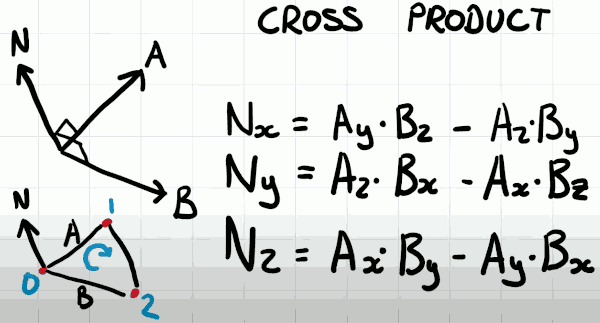 CROSS PRODUCT
N
A
B
Nx = Ay·Bz - Az·By
Ny = Az·Bx - Ax·Bz
Nz = Ax·By - Ay·Bx
N
A
1
0
B
2